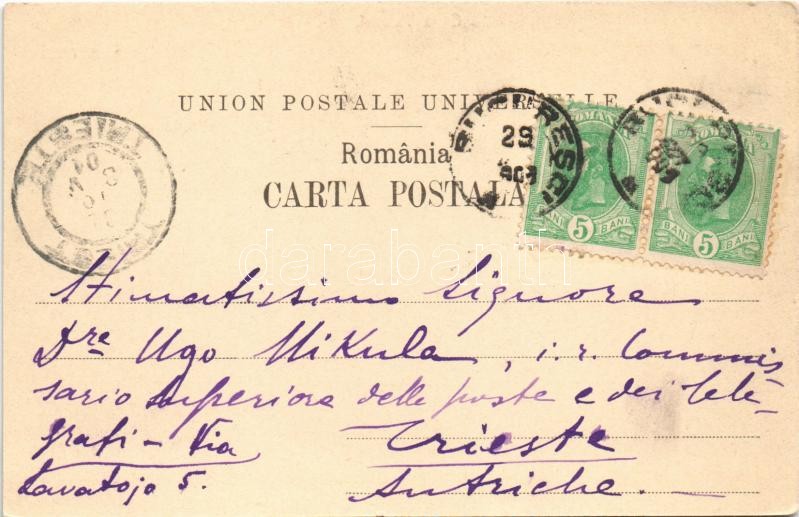 UNION POSTALE UNIVERSELLE
România
CARTA POSTALA
ROMANIA
BANI 5 BANI
ROMANIA
BANI 5 BANI
BUCURESCI
29
TRIEST
TRIESTE
darabanth
Stimatissimo Signore
Dre Ugo Mikula, i. r. Commis
sario Superiore delle poste e dei tele-
grafi - Via
Trieste
Lavatojo 5.
Autriche.